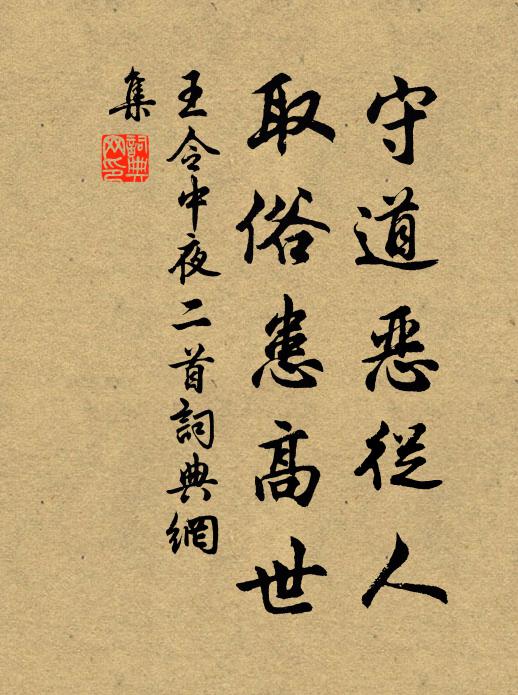 守道惡從人
取俗患高世
王令中夜二首詞典網
集
詞典
网印